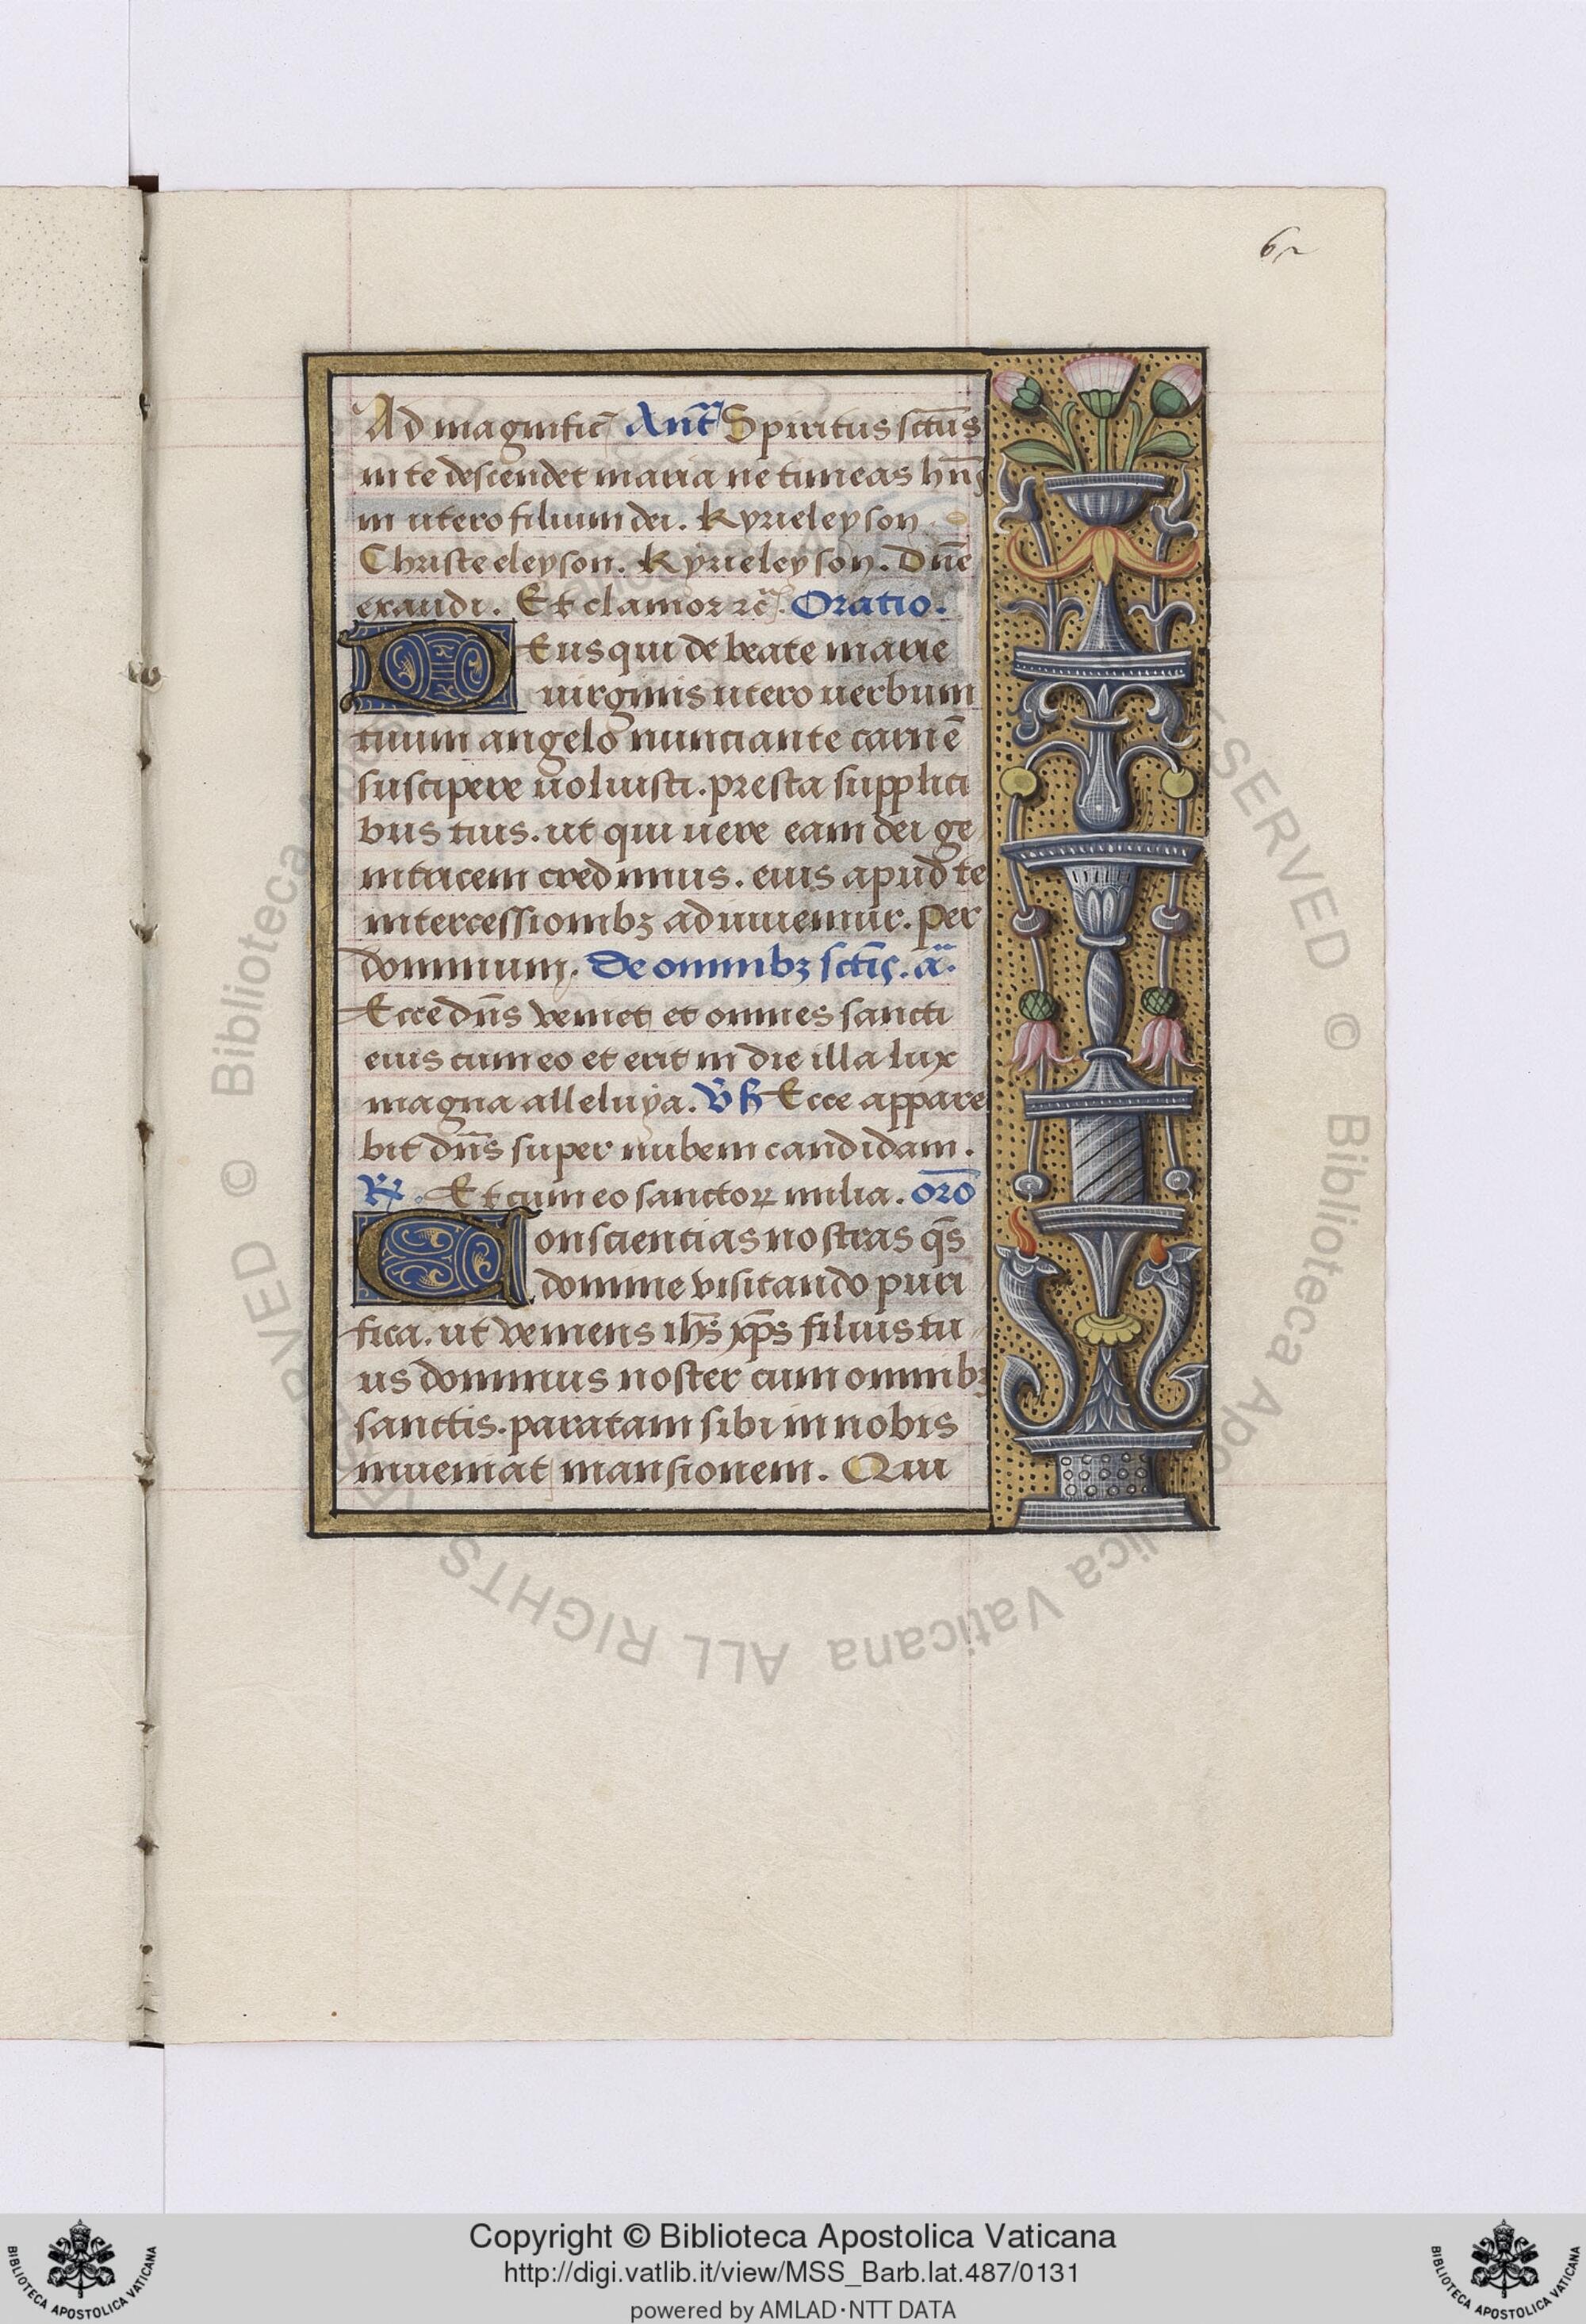 62
Ad magnific̄ Ant̄ Spiritus sct̄us
in te descendet maria ne timeas hn̄s
in utero filium dei. Kyrieleyson.
Christe eleyson. Kyrieleyson. Dn̄e
exaudi. Et clamor ꝛc̄. Oratio.
DEus qui de beate marie
uirginis utero uerbum
tuum angelo nunciante carnē
suscipere uoluisti. presta supplici
bus tuis. ut qui uere eam dei ge
nitricem credimus. eius apud te
intercessionibꝫ adiuuemur. Per
dominum. De omnibꝫ sct̄is. a͞.
Ecce dn̄s veniet et omnes sancti
eius cum eo et erit in die illa lux
magna alleluya. Vs̄ Ecce appare
bit dn̄s super nubem candidam.
℟. Et cum eo sanctoꝝ milia. or̄o
Conscientias nostras qs̄
domine visitando puri
fica. ut veniens ih̄s xp̄s filius tu
us dominus noster cum omnibꝫ
sanctis. paratam sibi in nobis
inueniat mansionem. Qui
© Biblioteca Apostolica Vaticana ALL RIGHTS RESERVED
Copyright © Biblioteca Apostolica Vaticana
http://digi.vatlib.it/view/MSS_Barb.lat.487/0131
powered by AMLAD·NTT DATA
BIBLIOTECA APOSTOLICA VATICANA
BIBLIOTECA APOSTOLICA VATICANA